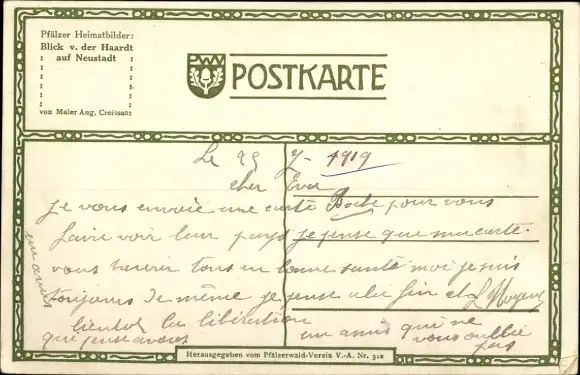 Pfälzer Heimatbilder:
Blick v. der Haardt
auf Neustadt
von Maler Aug. Croissant
PWV
POSTKARTE
Le 29 7 - 1919
cher
Je vous envoie une carte Boche pour vous
faire voir leur pays je pense que ma carte
vous tous en bonne santé moi je suis
toujours de même je pense a la fin et
bientot la libération un amis qui ne
que pense avoir vous oublie
pas
un amis
Herausgegeben vom Pfälzerwald-Verein V.-A. Nr. 312